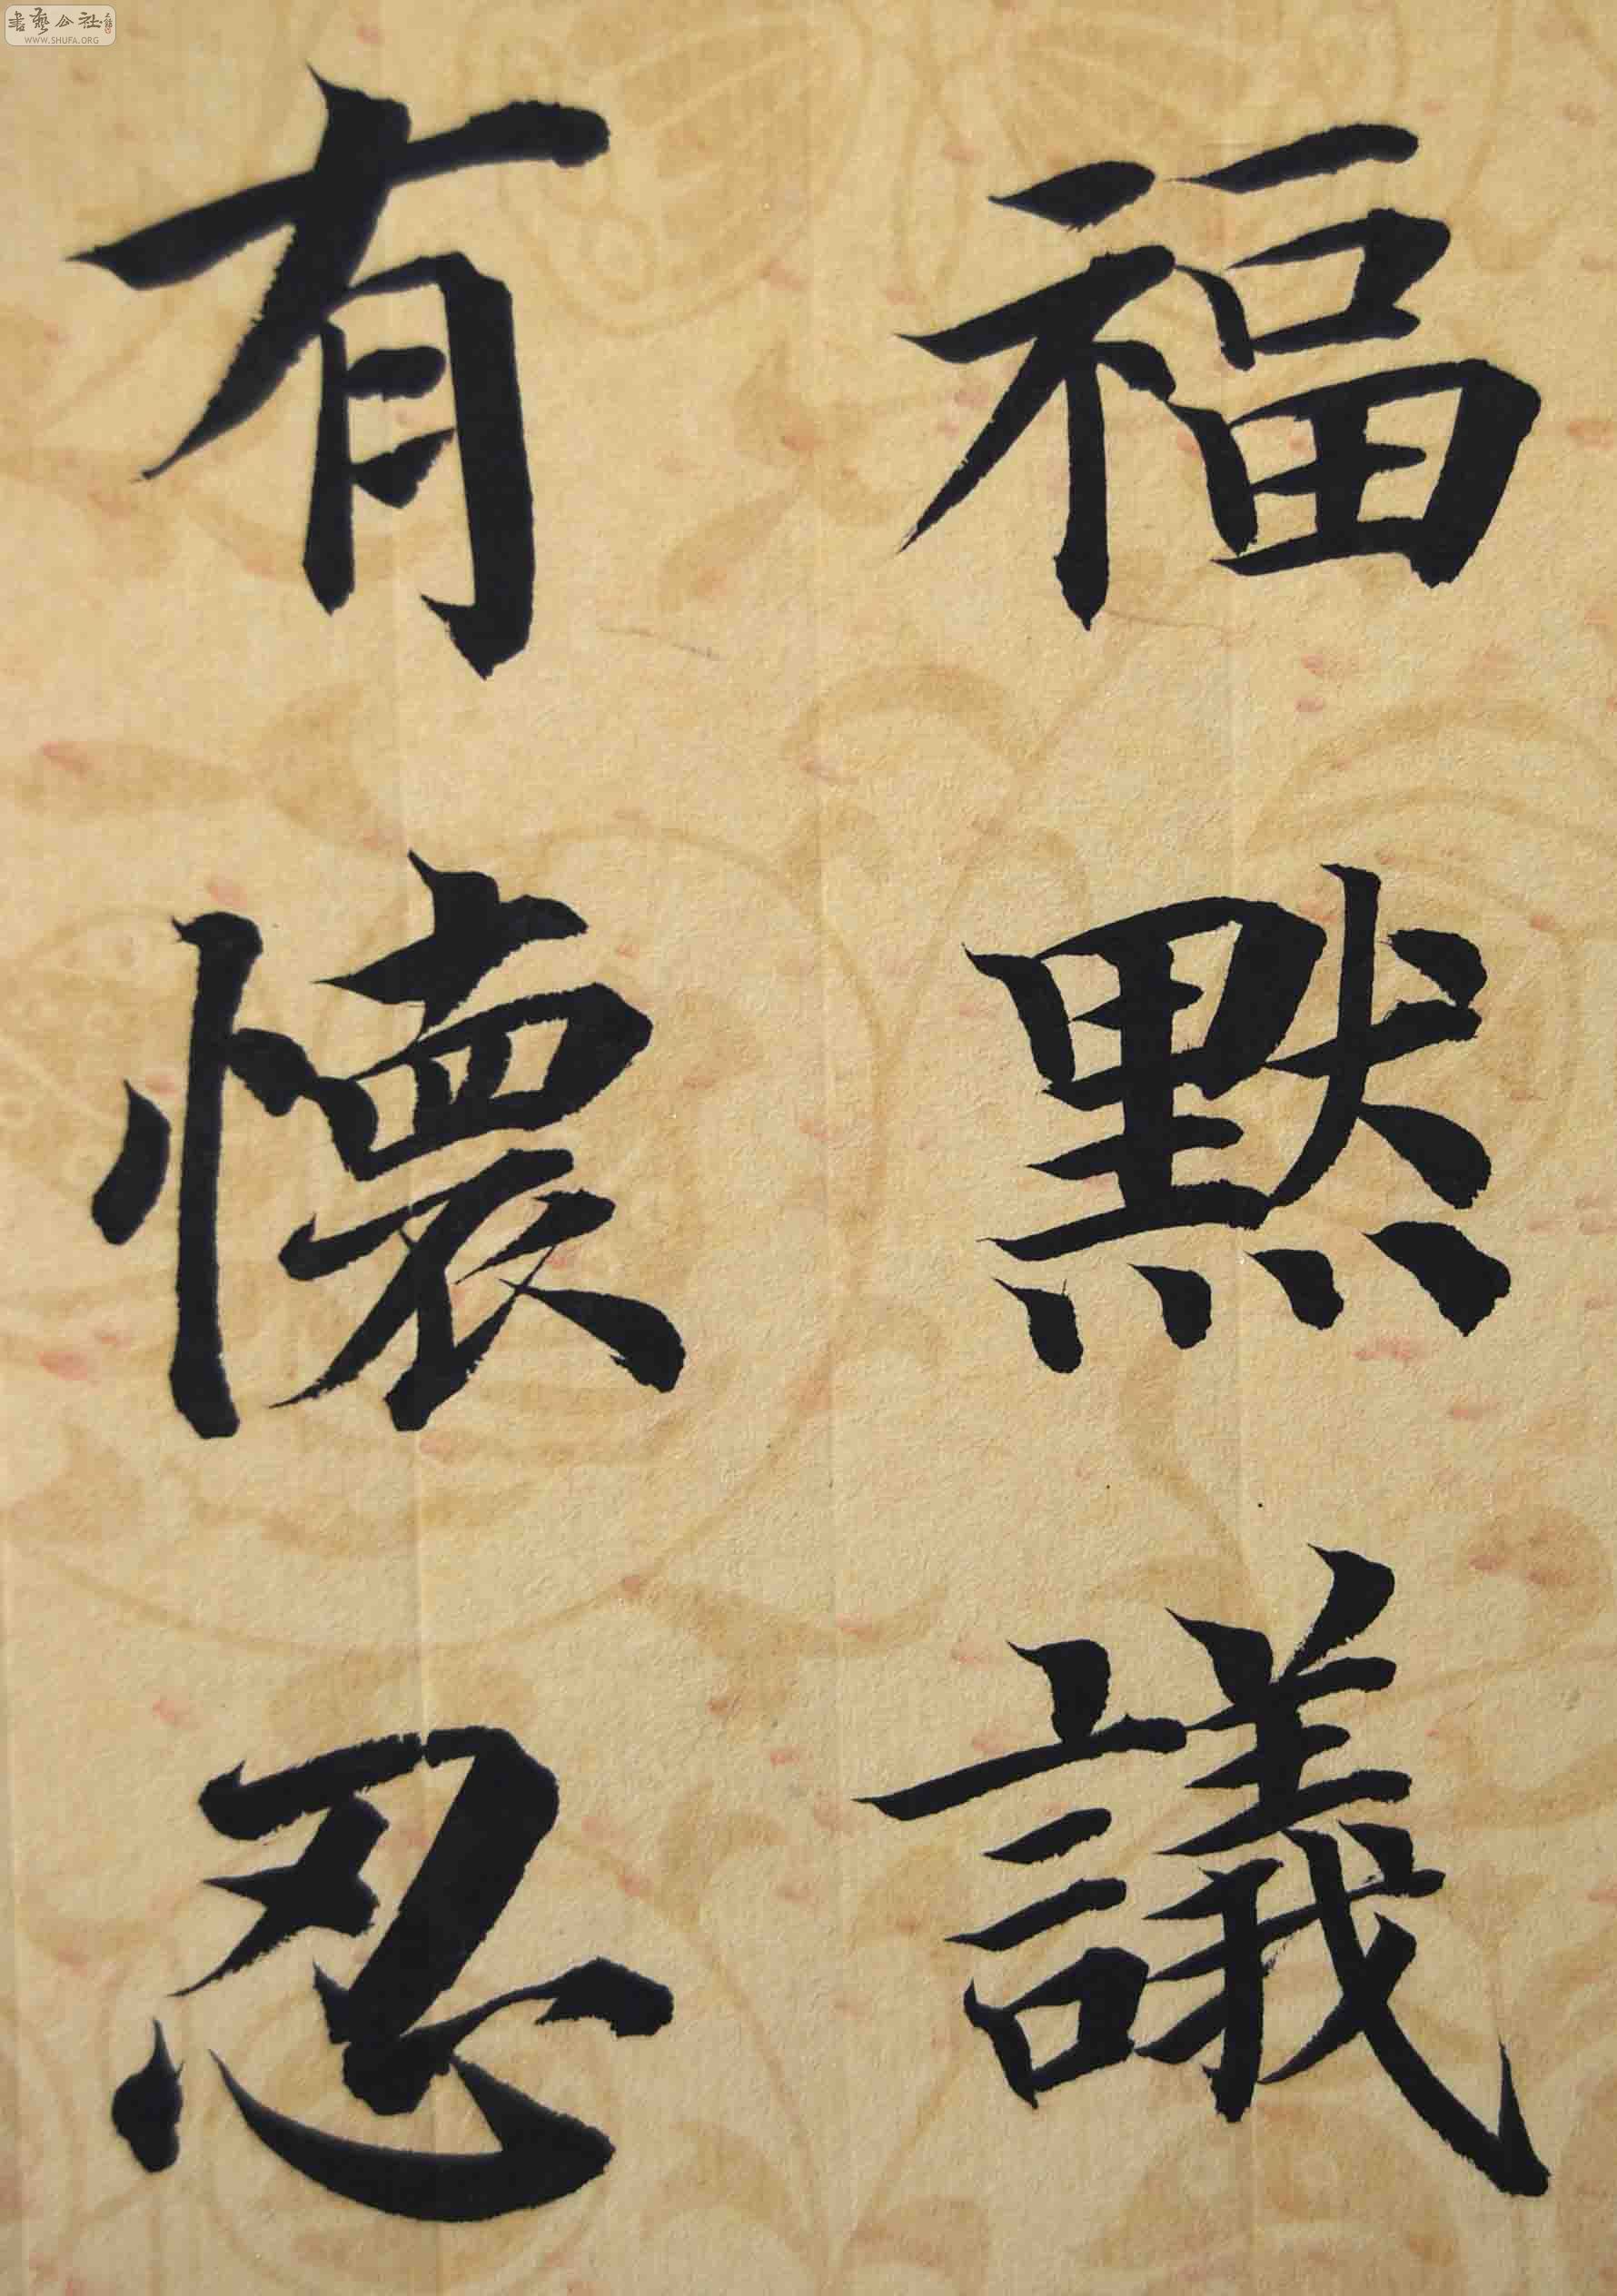 福默議
有懷忍
書藝公社
WWW.SHUFA.ORG